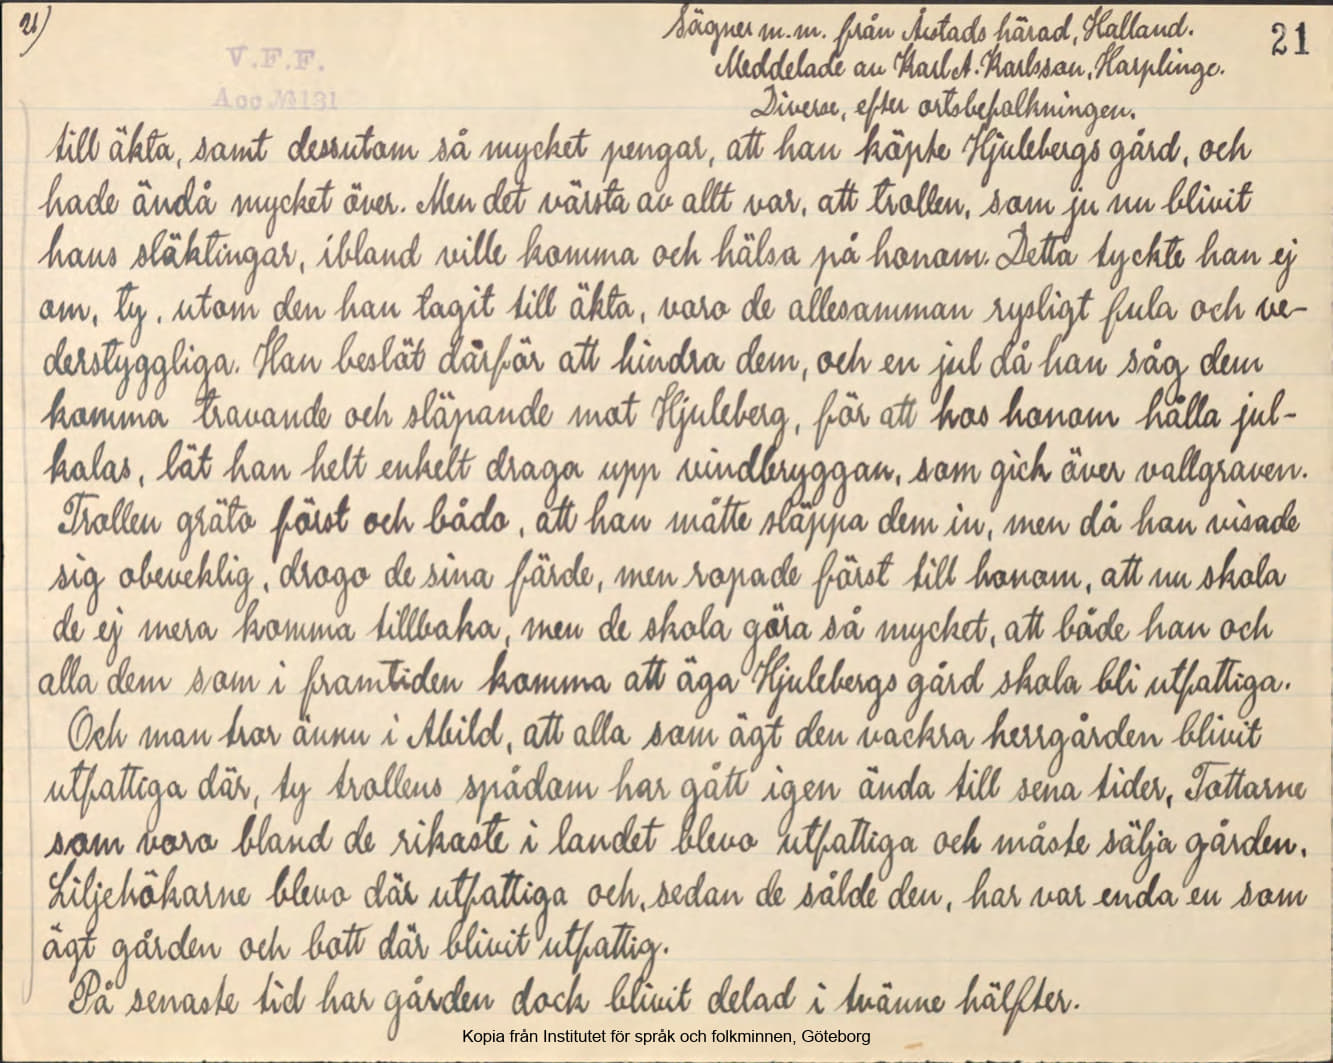 21)
Sägner m.m. från Årstads härad, Halland.
21
V.F.F.
Meddelade av Karl A. Karlsson, Harplinge.
Acc № 131
Diverse, efter ortsbefolkningen.
till äkta, samt dessutom så mycket pengar, att han köpte Hjulebergs gård, och
hade ändå mycket över. Men det värsta av allt var, att trollen, som ju nu blivit
hans släktingar, ibland ville komma och hälsa på honom. Detta tyckte han ej
om, ty, utom den han tagit till äkta, voro de allesamman rysligt fula och ve-
derstyggliga. Han beslöt därför att hindra dem, och en jul då han såg dem
komma travande och släpande mot Hjuleberg, för att hos honom hålla jul-
kalas, lät han helt enkelt draga upp vindbryggan, som gick över vallgraven.
Trollen gräto först och bådo, att han måtte släppa dem in, men då han visade
sig obeveklig, drogo de sina färde, men ropade först till honom, att nu skola
de ej mera komma tillbaka, men de skola göra så mycket, att både han och
alla dem som i framtiden komma att äga Hjulebergs gård skola bli utfattiga.
Och man tror ännu i Abild, att alla som ägt den vackra herrgården blivit
utfattiga där, ty trollens spådom har gått igen ända till sena tider, Tottarne
som voro bland de rikaste i landet blevo utfattiga och måste sälja gården.
Liljehökarne blevo där utfattiga och, sedan de sålde den, har var enda en som
ägt gården och bott där blivit utfattig.
På senaste tid har gården dock blivit delad i tvänne hälfter.
Kopia från Institutet för språk och folkminnen, Göteborg